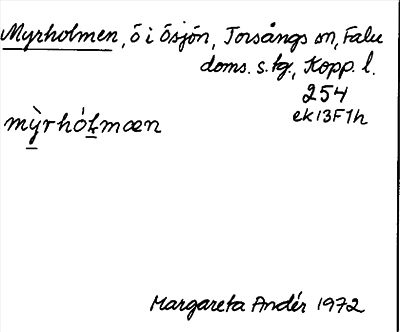 Myrholmen, ö i Ösjön, Torsångs sn, Falu
doms. s. tg., Kopp. l.
254
ek 13F1h
mỳrhólmæn
Margareta Andér 1972